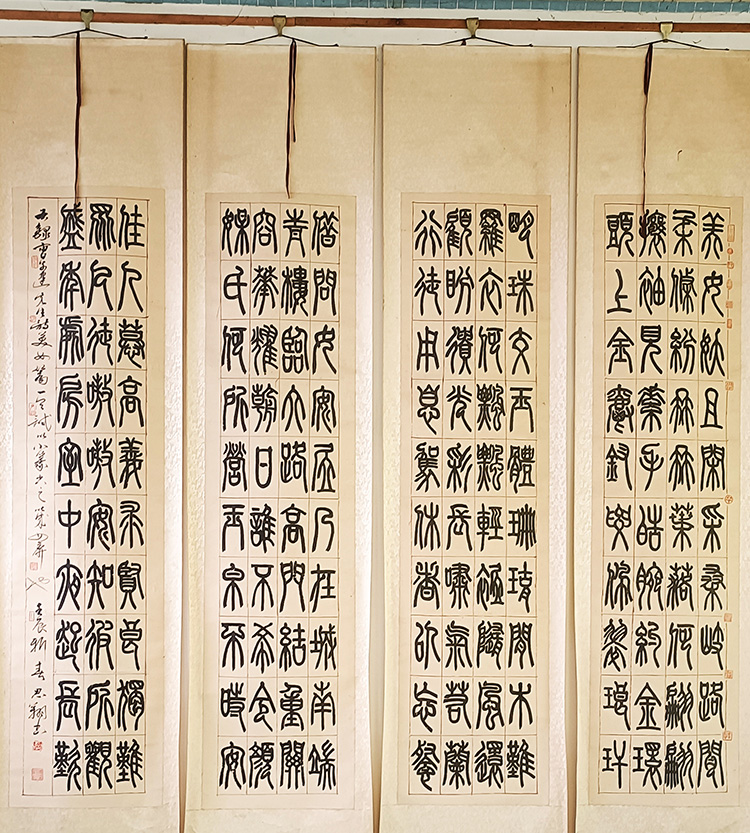 美女妖且閑采桑歧路間
柔條紛冉冉葉落何翩翩
攘袖見素手皓腕約金環
頭上金爵釵腰佩翠琅玕
明珠交玉體珊瑚間木難
羅衣何飄飄輕裾隨風還
顧盼遺光彩長嘯氣若蘭
行徒用息駕休者以忘餐
借問女安居乃在城南端
青樓臨大路高門結重關
容華耀朝日誰不希令顏
媒氏何所營玉帛不時安
佳人慕高義求賢良獨難
眾人徒嗷嗷安知彼所觀
盛年處房室中夜起長歎
右錄曹子建先生詩美女篇一首試以小篆書之以成四屏 壬辰新春